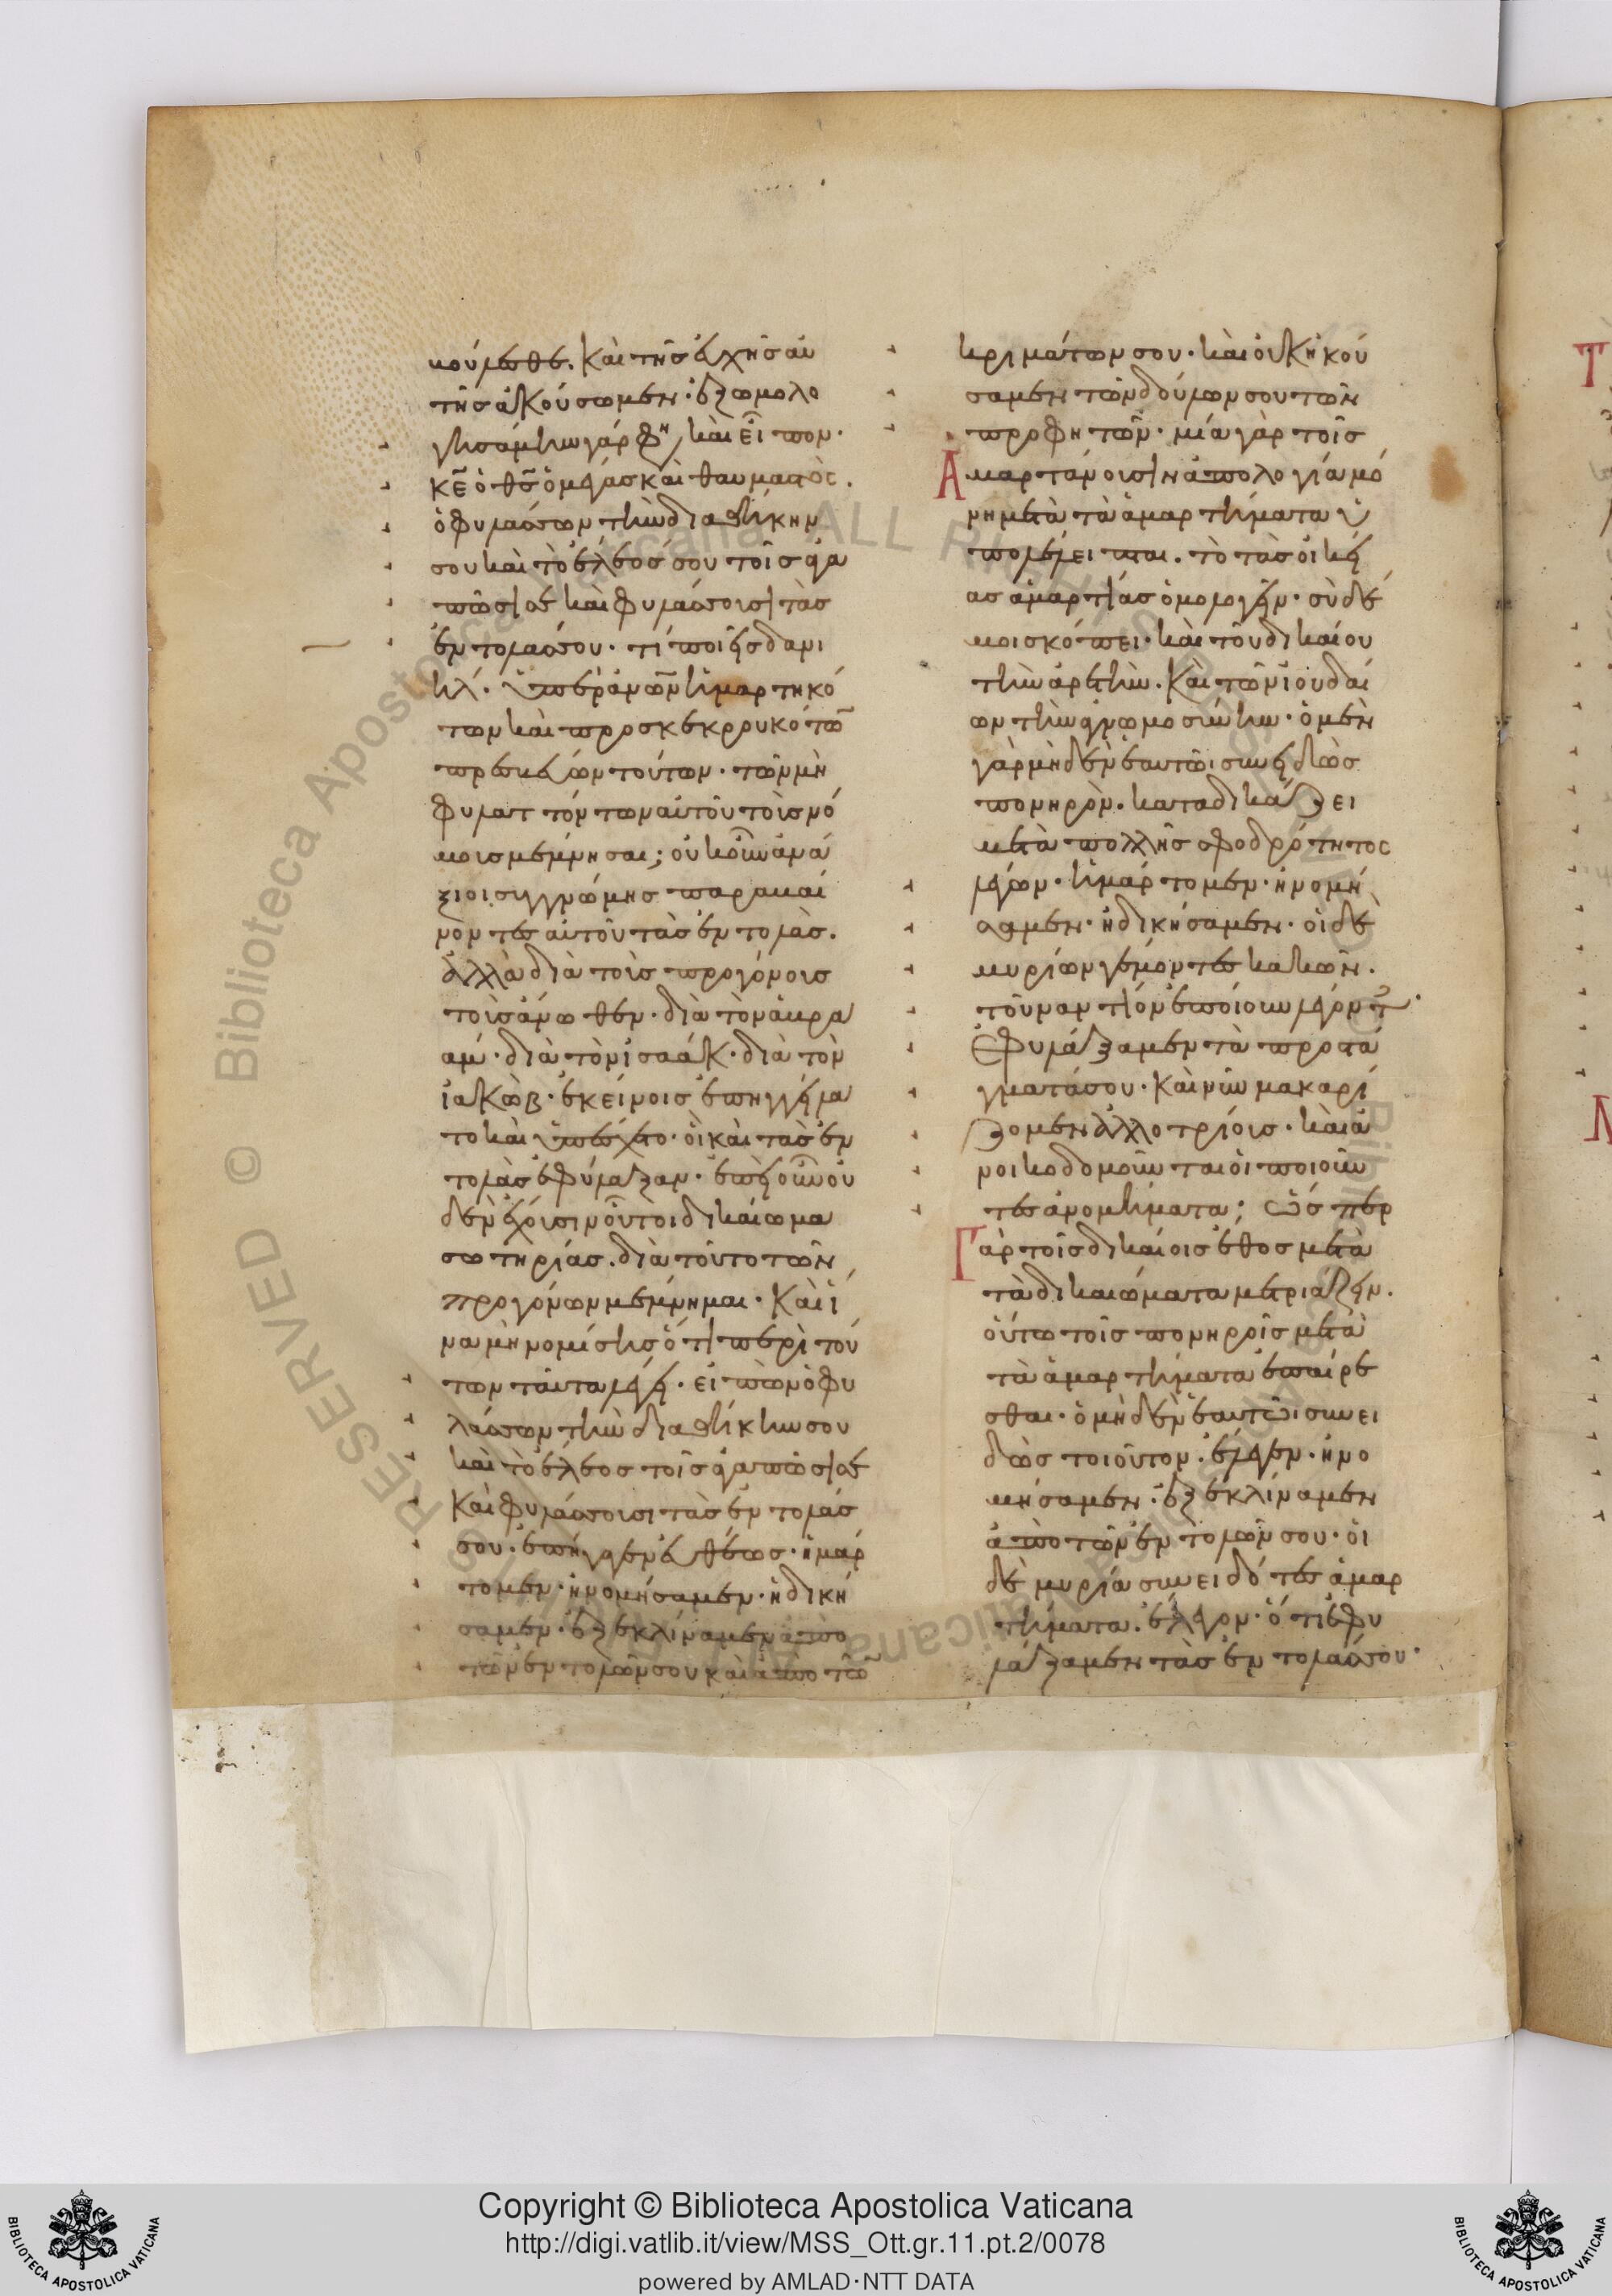 κούεσθε. καὶ τῆς εὐχῆς αυ
τῆς ἀκούσωμεν. ἐξωμολο
γησάμην γάρ φη, καὶ εἶπον.
κε̄ ὁ θς̄ ὁ μέγας καὶ θαυμαστὸς.
ὁ φυλάσσων τὴν διαθήκην
σου καὶ τὸ ἔλεος σου τοῖς ἀγα
πῶσί σε καὶ φυλάσσουσι τὰς
ἐντολάς σου. τί ποιεῖς δανι
ήλ. ὑπὲρ ἀνω̅ν ἡμαρτηκό
των καὶ προσκεκρουκότω̅
πρεσβεύων τούτων. τῶν μὴ
φυλαττόντων αὐτοῦ τοῖς νό
μοις μέμνησαι; οὐκοῦν ἀνά
ξιοι συγγνώμης παραβαί
νοντες αὐτοῦ τὰς ἐντολάς.
ἀλλὰ διὰ τοὺς προγόνους
τοὺς ἄνωθεν. διὰ τὸν ἀβρα
ὰμ. διὰ τὸν ἰσαάκ. διὰ τὸν
ἰακώβ. ἐκείνοις ἐπηγγείλα
το καὶ ὑπέσχετο. οἳ καὶ τὰς ἐν
τολὰς ἐφύλαξαν. ἐπεὶ οὖν οὐ
δὲν ἔχουσιν οὗτοι δικαίωμα
σωτηρίας. διὰ τοῦτο τῶν
προγόνων μέμνημαι. καὶ ἵ
να μὴ νομίσῃς ὅτι περὶ τού
των ταῦτα λέγει. εἰπὼν ὁ φυ
λάσσων τὴν διαθήκην σου
καὶ τὸ ἔλεος τοῖς ἀγαπῶσί σε
καὶ φυλάσσουσι τὰς ἐντολάς
σου. ἐπήγαγεν εὐθέως. ἡμάρ
τομεν. ἠνομήσαμεν. ἠδική
σαμεν. ἐξεκλίναμεν ἀπὸ
τῶν ἐντολῶν σου καὶ ἀπὸ τῶ̅
κριμάτων σου. καὶ οὐκ ἠκού
σαμεν τῶν δούλων σου τῶν
προφητῶν. μία γὰρ τοῖς
Αμαρτάνουσιν ἀπολογία μό
νη μετὰ τὰ ἁμαρτήματα ὑ
πολέλειπται. τὸ τὰς οἰκεί
ας ἁμαρτίας ὁμολογεῖν. σὺ δέ
μοι σκόπει. καὶ τοῦ δικαίου
τὴν ἀρετὴν. καὶ τῶν ἰουδαί
ων τὴν ἀγνωμοσύνην. ὁ μὲν
γὰρ μηδὲν ἑαυτῶι συνειδὼς
πονηρὸν. καταδικάζει
μετὰ πολλῆς σφοδρότητος
λέγων. ἡμάρτομεν. ἠνομή
σαμεν. ἠδικήσαμεν. οἱ δὲ
μυρίων γέμοντες κακῶν.
τοὐναντίον ἐποίουν λέγοντ
Ἐφυλάξαμεν τὰ προστά
γματά σου. καὶ νῦν μακαρί
ζομεν ἀλλοτρίους. καὶ ἀ
νοικοδομοῦνται οἱ ποιοῦν
τες ἀνομήματα; ὥσπερ
Γὰρ τοῖς δικαίοις ἔθος μετὰ
τὰ δικαιώματα μετριάζειν.
οὕτω τοῖς πονηροῖς μετὰ
τὰ ἁμαρτήματα ἐπαίρε
σθαι. ὁ μηδὲν ἑαυτῶι συνει
δὼς τοιοῦτον. ἔλεγεν. ἠνο
μήσαμεν. ἐξεκλίναμεν
ἀπὸ τῶν ἐντολῶν σου. οἱ
δὲ μυρία συνειδότες ἁμαρ
τήματα. ἔλεγον. ὅτι ἐφυ
λάξαμεν τὰς ἐντολάς σου.
Biblioteca Apostolica Vaticana ALL RIGHTS RESERVED ©
Copyright © Biblioteca Apostolica Vaticana
http://digi.vatlib.it/view/MSS_Ott.gr.11.pt.2/0078
powered by AMLAD·NTT DATA
BIBLIOTECA APOSTOLICA VATICANA
BIBLIOTECA APOSTOLICA VATICANA